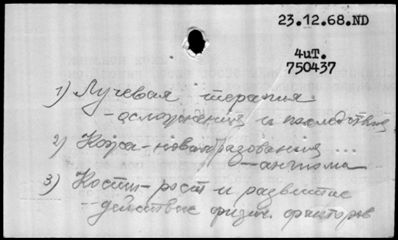 23.12.68.ND
4иT.
750437
1) Лучевая терапия
- осложнения и последствия
2) Кожа - новообразования ...
- ангиома
3) Кости - рост и развитие
- действие физич. факторов